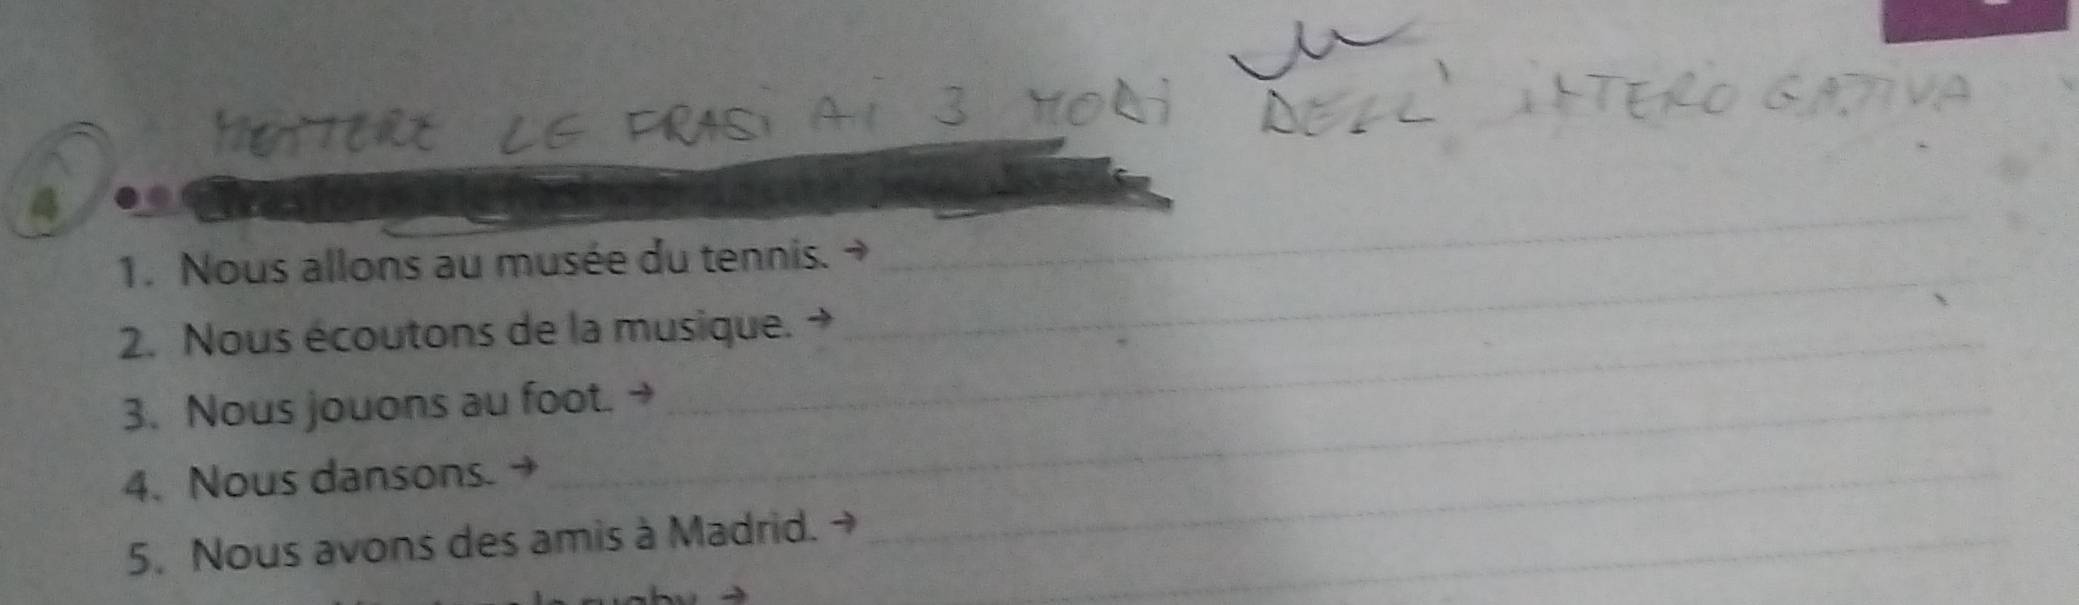 METTERE LE FRASI AI 3 MODI DELL' INTEROGATIVA
4
1. Nous allons au musée du tennis. →
2. Nous écoutons de la musique. →
3. Nous jouons au foot. →
4. Nous dansons. →
5. Nous avons des amis à Madrid. →
rugby →